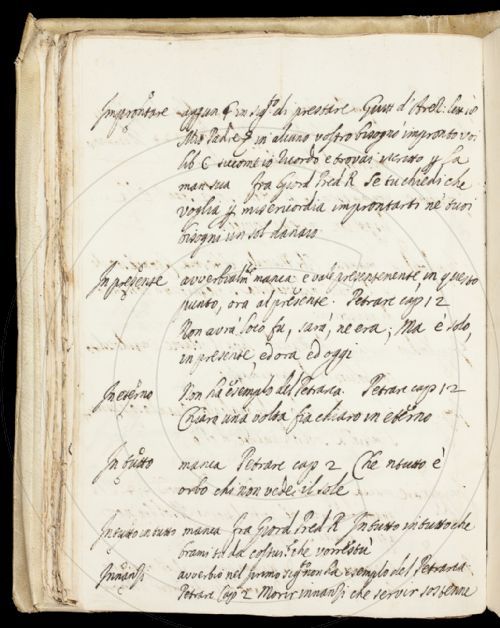 Improntare aggiun. in sig.to di prestare Guitt d'Arez. lett 18
Mio Padre in alcuno vostro bisogno improntò voi
lib C siccome io ricordo e trovai scritto p sa
man sua fra Giord Pred R Se tu chiedi che
voglia p misericordia improntarti ne tuoi
bisogni un sol danaio
In presente avverbialm.te manca e vale presentemente, in questo
punto, ora al presente. Petrarc cap 12
Non avrà loco fu, sarà, ne era; Ma è solo,
in presente, ed ora ed oggi
In eterno Non ha esemplo del Petrarca. Petrarc cap 12
Chiara una volta fia chiaro in eterno
In tutto manca Petrarc cap 2 Che n tutto è
orbo chi non vede il sole
In tutto in tutto manca fra Giord Pred R In tutto in tutto che
brami tu da costui? che vorrestù
Innanzi avverbio nel primo sig.to non ha esemplo del Petrarca
Petrarc Cap 2 Morir innanzi che servir sostenne